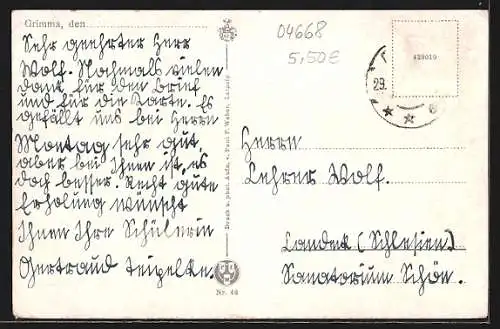 Grimma, den
Sehr geehrter Herr
Wolf. Nochmals vielen
Dank für den Brief
und für die Karte. Es
gefällt uns bei Herrn
Montag sehr gut,
aber bei Ihnen ist es
doch besser. Recht gute
Erholung wünscht
Ihnen Ihre Schülerin
Gertraud Teipelke.
Nr. 46
04668
5,50€
29.
429010
Herrn
Lehrer Wolf.
Landeck (Schlesien)
Sanatorium Schön.